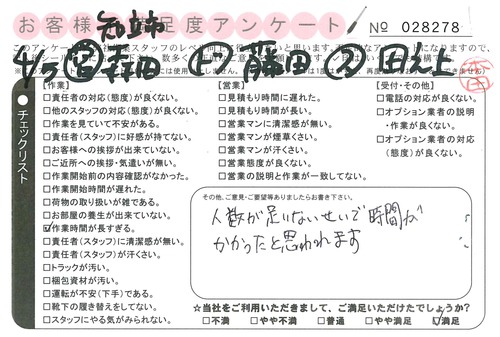 お客様 足度アンケート
№ 028278
4/5 田 藤田 田上
チェックリスト
【作業】
□責任者の対応(態度)が良くない。
□他のスタッフの対応(態度)が良くない。
□作業を見ていて不安がある。
□責任者(スタッフ)に好感が持てない。
□お客様への挨拶が出来ていない。
□ご近所への挨拶・気遣いが無い。
□作業開始前の内容確認がなかった。
□作業開始時間が遅れた。
□荷物の取り扱いが雑である。
□お部屋の養生が出来ていない。
☑作業時間が長すぎる。
□責任者(スタッフ)に清潔感が無い。
□責任者(スタッフ)が汗くさい。
□トラックが汚い。
□梱包資材が汚い。
□運転が不安(下手)である。
□靴下の履き替えをしてない。
□スタッフにやる気がみられない。
【営業】
□見積もり時間に遅れた。
□見積もり時間が長い。
□営業マンに清潔感が無い。
□営業マンが煙草くさい。
□営業マンが汗くさい。
□営業態度が良くない。
□営業の説明と作業が一致してない。
【受付・その他】
□電話の対応が良くない。
□オプション業者の説明
・作業が良くない。
□オプション業者の対応
(態度)が良くない。
その他、ご意見・ご要望等ありましたらお書き下さい。
人数が足いないせいで時間が
かかったと思われます
☆当社をご利用いただきまして、ご満足いただけたでしょうか?
□不満 □やや不満 □普通 □やや満足 ☑満足